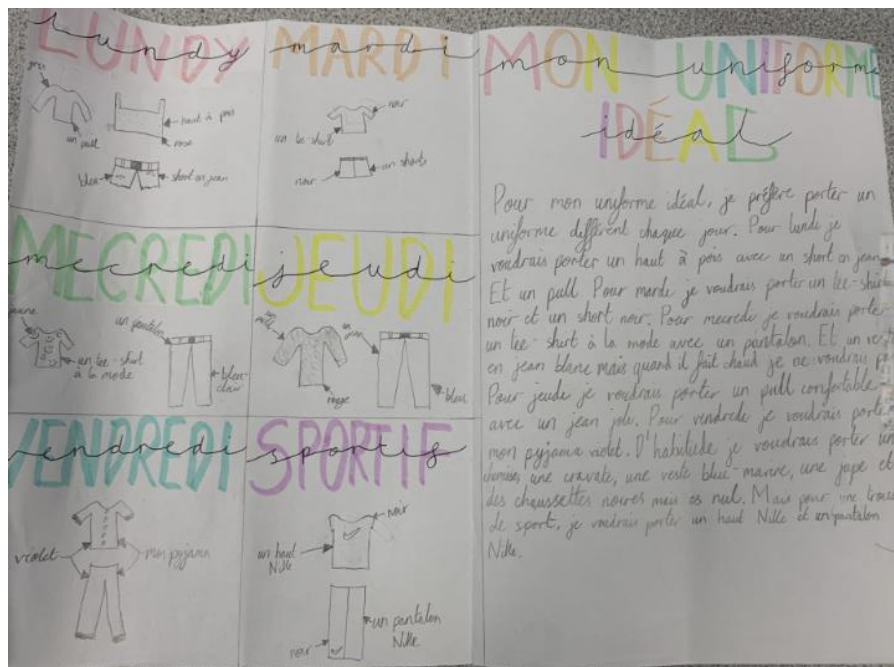 LUNDY
lundy
gris
un pull
haut à pois
rose
bleu
short en jean
MARDI
mardi
noir
un tee-shirt
noir
un shorts
MECREDI
mecredi
jaune
un tee-shirt
à la mode
un pantalon
bleu-
clair
JEUDI
jeudi
un pull
rouge
un jean
bleu
VENDREDI
vendredi
violet
mon pyjama
SPORTIF
sportif
noir
un haut
Nike
un pantalon
Nike
noir
MON UNIFORME
mon uniforme
IDÉAL
idéal
Pour mon uniforme idéal, je préfère porter un
uniforme différent chaque jour. Pour lundi je
voudrais porter un haut à pois avec un short en jean
Et un pull. Pour marde je voudrais porter un tee-shirt
noir et un short noir. Pour mecrede je voudrais porter
un tee-shirt à la mode avec un pantalon. Et un
en jean blanc mais quand il fait chaud je ne voudrais
Pour jeude je voudrais porter un pull confortable
avec un jean joli. Pour vendrede je voudrais porter
mon pyjama violet. D'habitude je voudrais porter une
chemise, une cravate, une veste blue-marine, une jupe et
des chaussettes noires mais nul. Mais pour une
de sport, je voudrais porter un haut Nike et un pantalon
Nike.